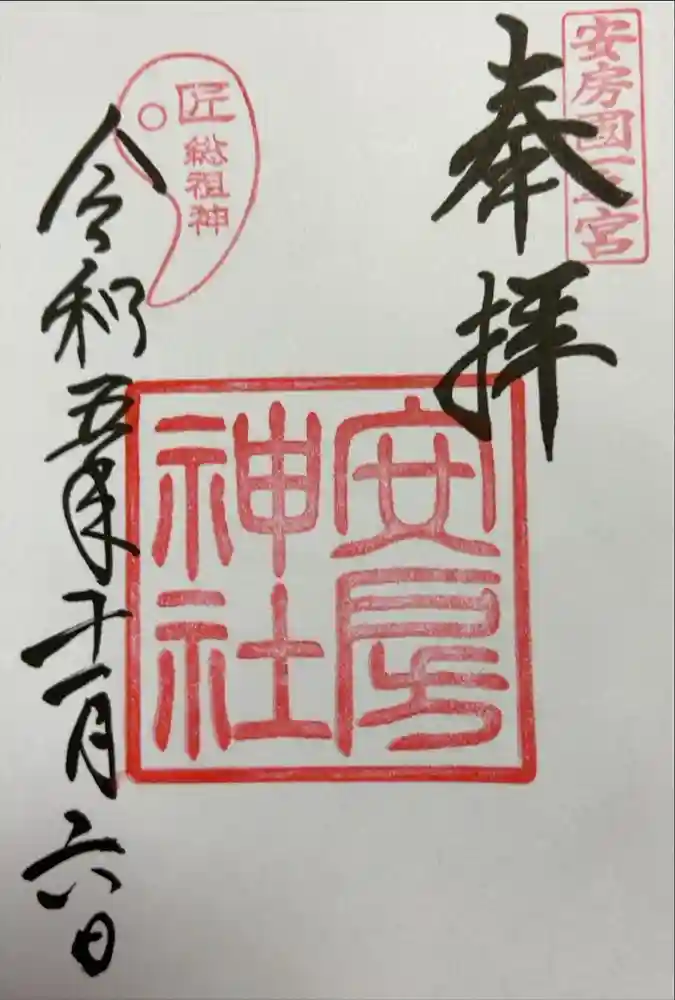 安房國一之宮
奉拝
安房
神社
匠
総祖神
令和五年十一月六日